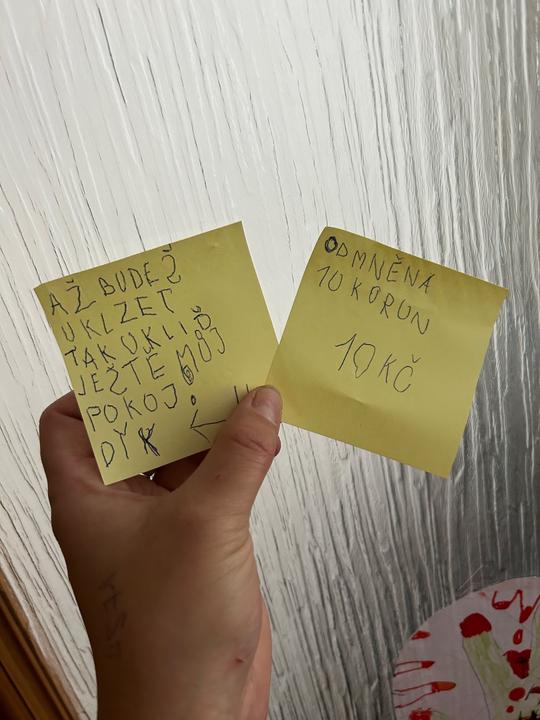 AŽ BUDEŽ
UKLZET
TAK UKLIĎ
JEŽTE MŮJ
POKOJ.
DÝK
ODMNĚNA
10 KORUN
10 KČ